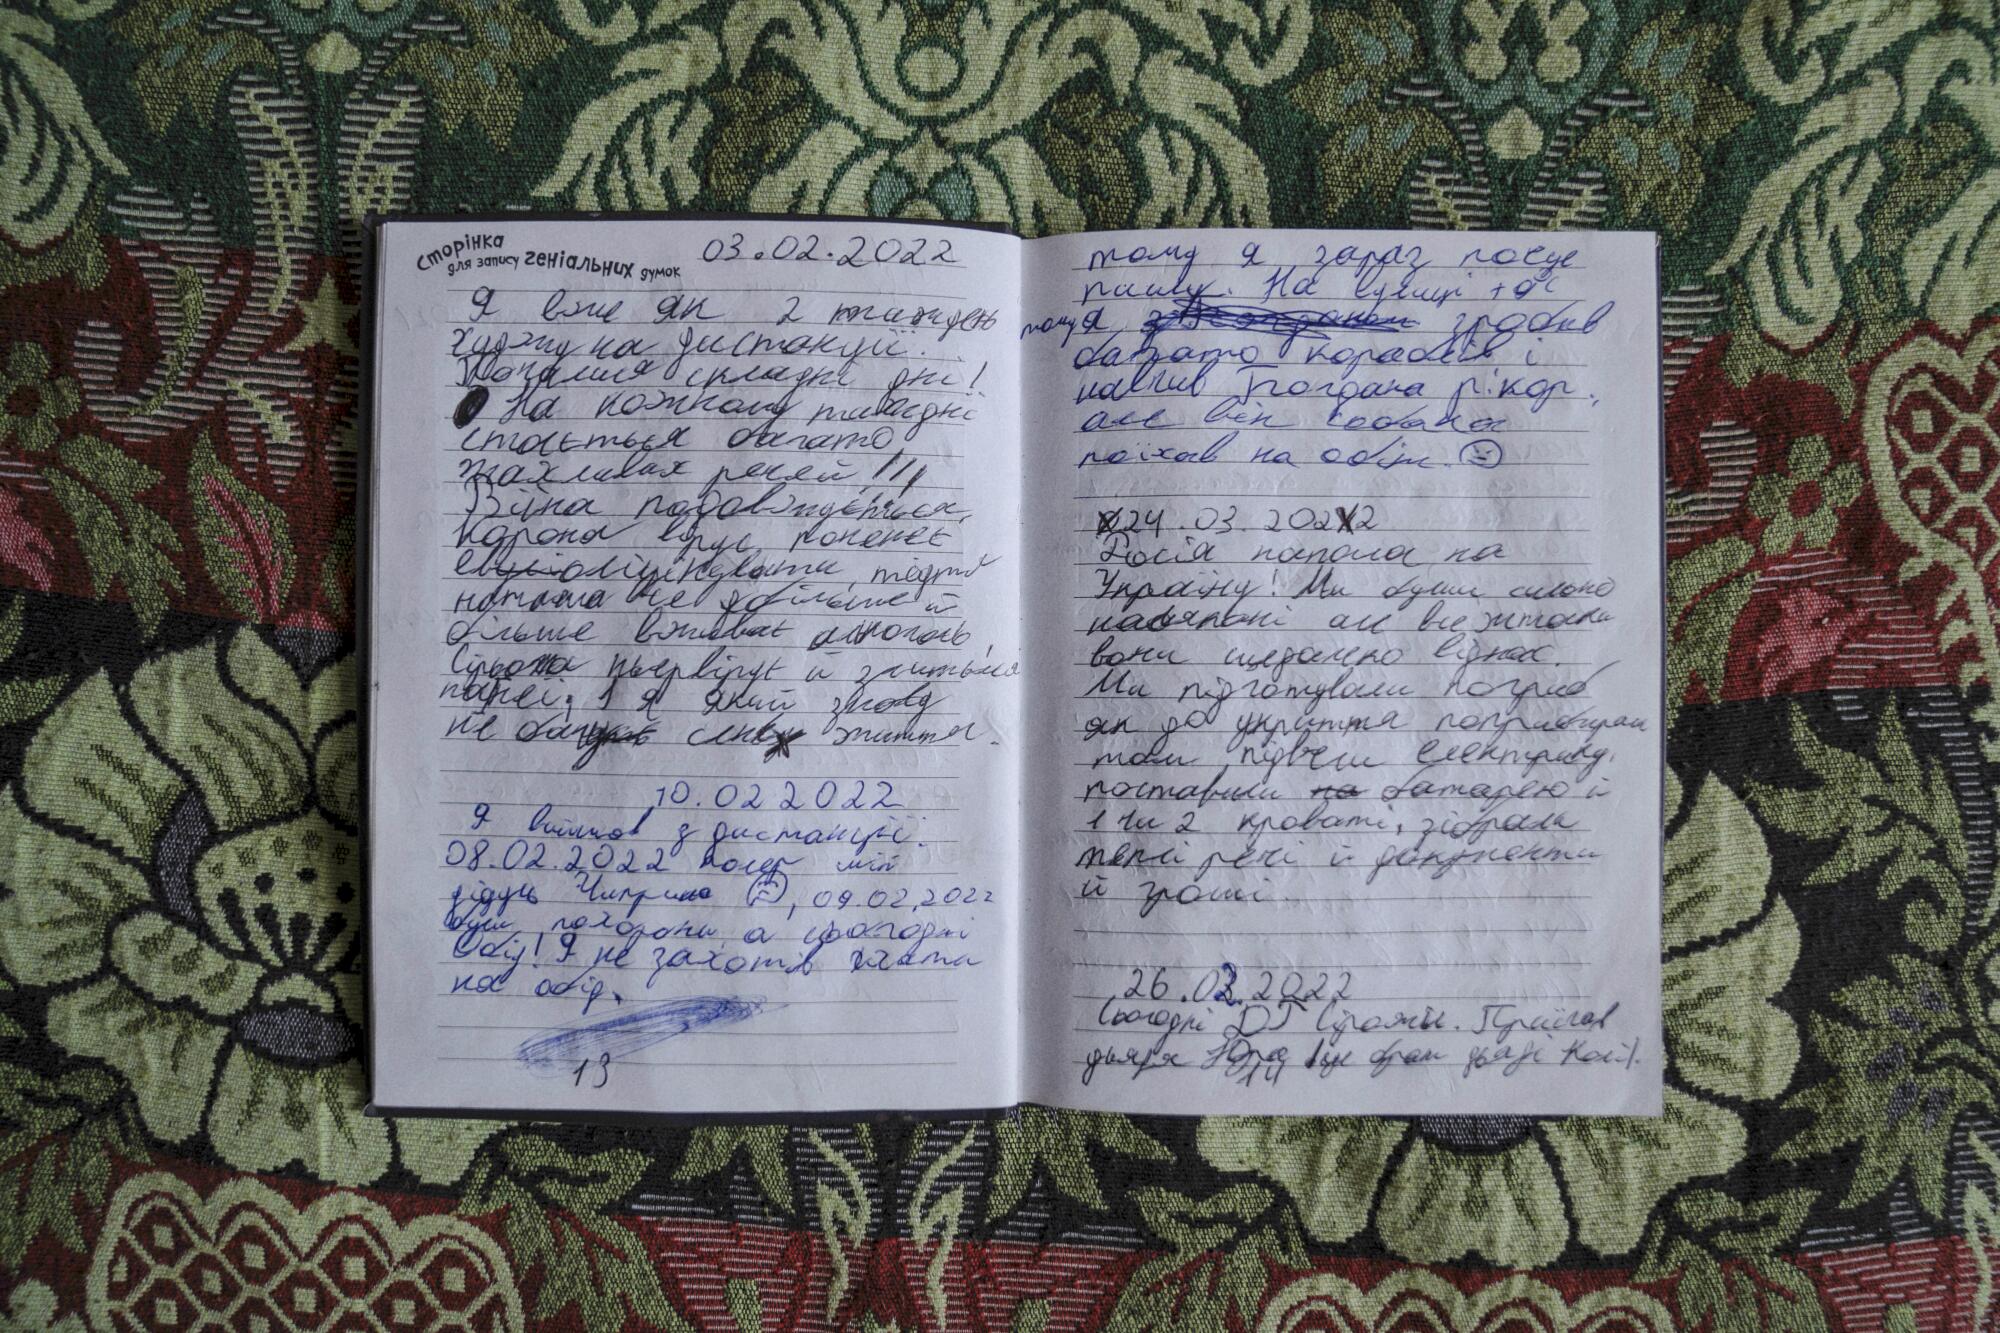 сторінка
для запису геніальних думок
03.02.2022
Я вже як 2 тиждень
ходжу на дистанції.
Почалися складні дні!
На кожному тиждні
стається багато
жахливих речей!!!
Війна подовжується,
Корона вірус почене
еволюціонувати,
не більше й
більше вживає алкоголь,
Сірьожа нервірує й злиться
на неї, і я який знову
не бачить сенсу життя.
10.02 2022
Я вийшов з дистанції.
08.02.2022 помер мій
дідусь Чиприна ☹, 09.02.2022
були похорони, а сьогодні
обід! Я не захотів їхати
на обід,
13
тому я зараз поїце
пишу. На вулиці +9°C
тому Я зробив
багато кораблів і
навчив Богдана рікор.,
але він собака
поїхав на обід. ☹
24.03.2022
Росія напала на
Україну! Ми були сильно
налякані але все ж таки
вони щедалеко від нас.
Ми підготували погриб
як до укриття поприбирали
там, підвели електрику,
поставили на батарею й
1 чи 2 кроваті, зібрали
теплі речі й документи
й гроші.
26.02.2022
Сьогодні ДР Сірожи. Приїхав
дьядя Юра це брат дьяді Колі).
14